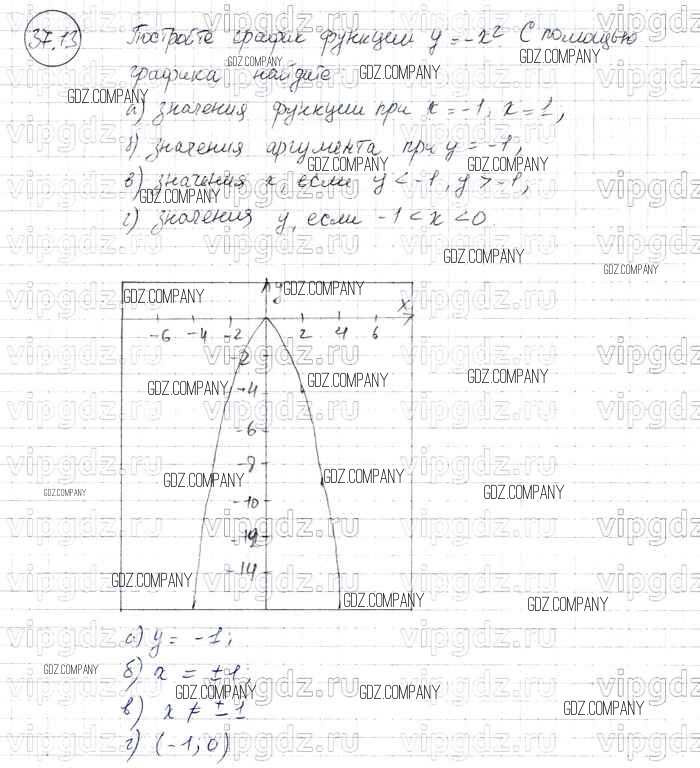 37.13
Постройте график функции y = -x² С помощью
графика найдите
а) значения функции при x = -1, x = 1;
б) значения аргумента при y = -1;
в) значения x, если y < -1, y > -1;
г) значения y, если -1 < x < 0
y
x
-6 -4 -2 2 4 6
-2
-4
-6
-10
-12
-14
а) y = -1;
б) x = ±1;
в) x ≠ ±1
г) (-1; 0)
GDZ.COMPANY
vipgdz.ru